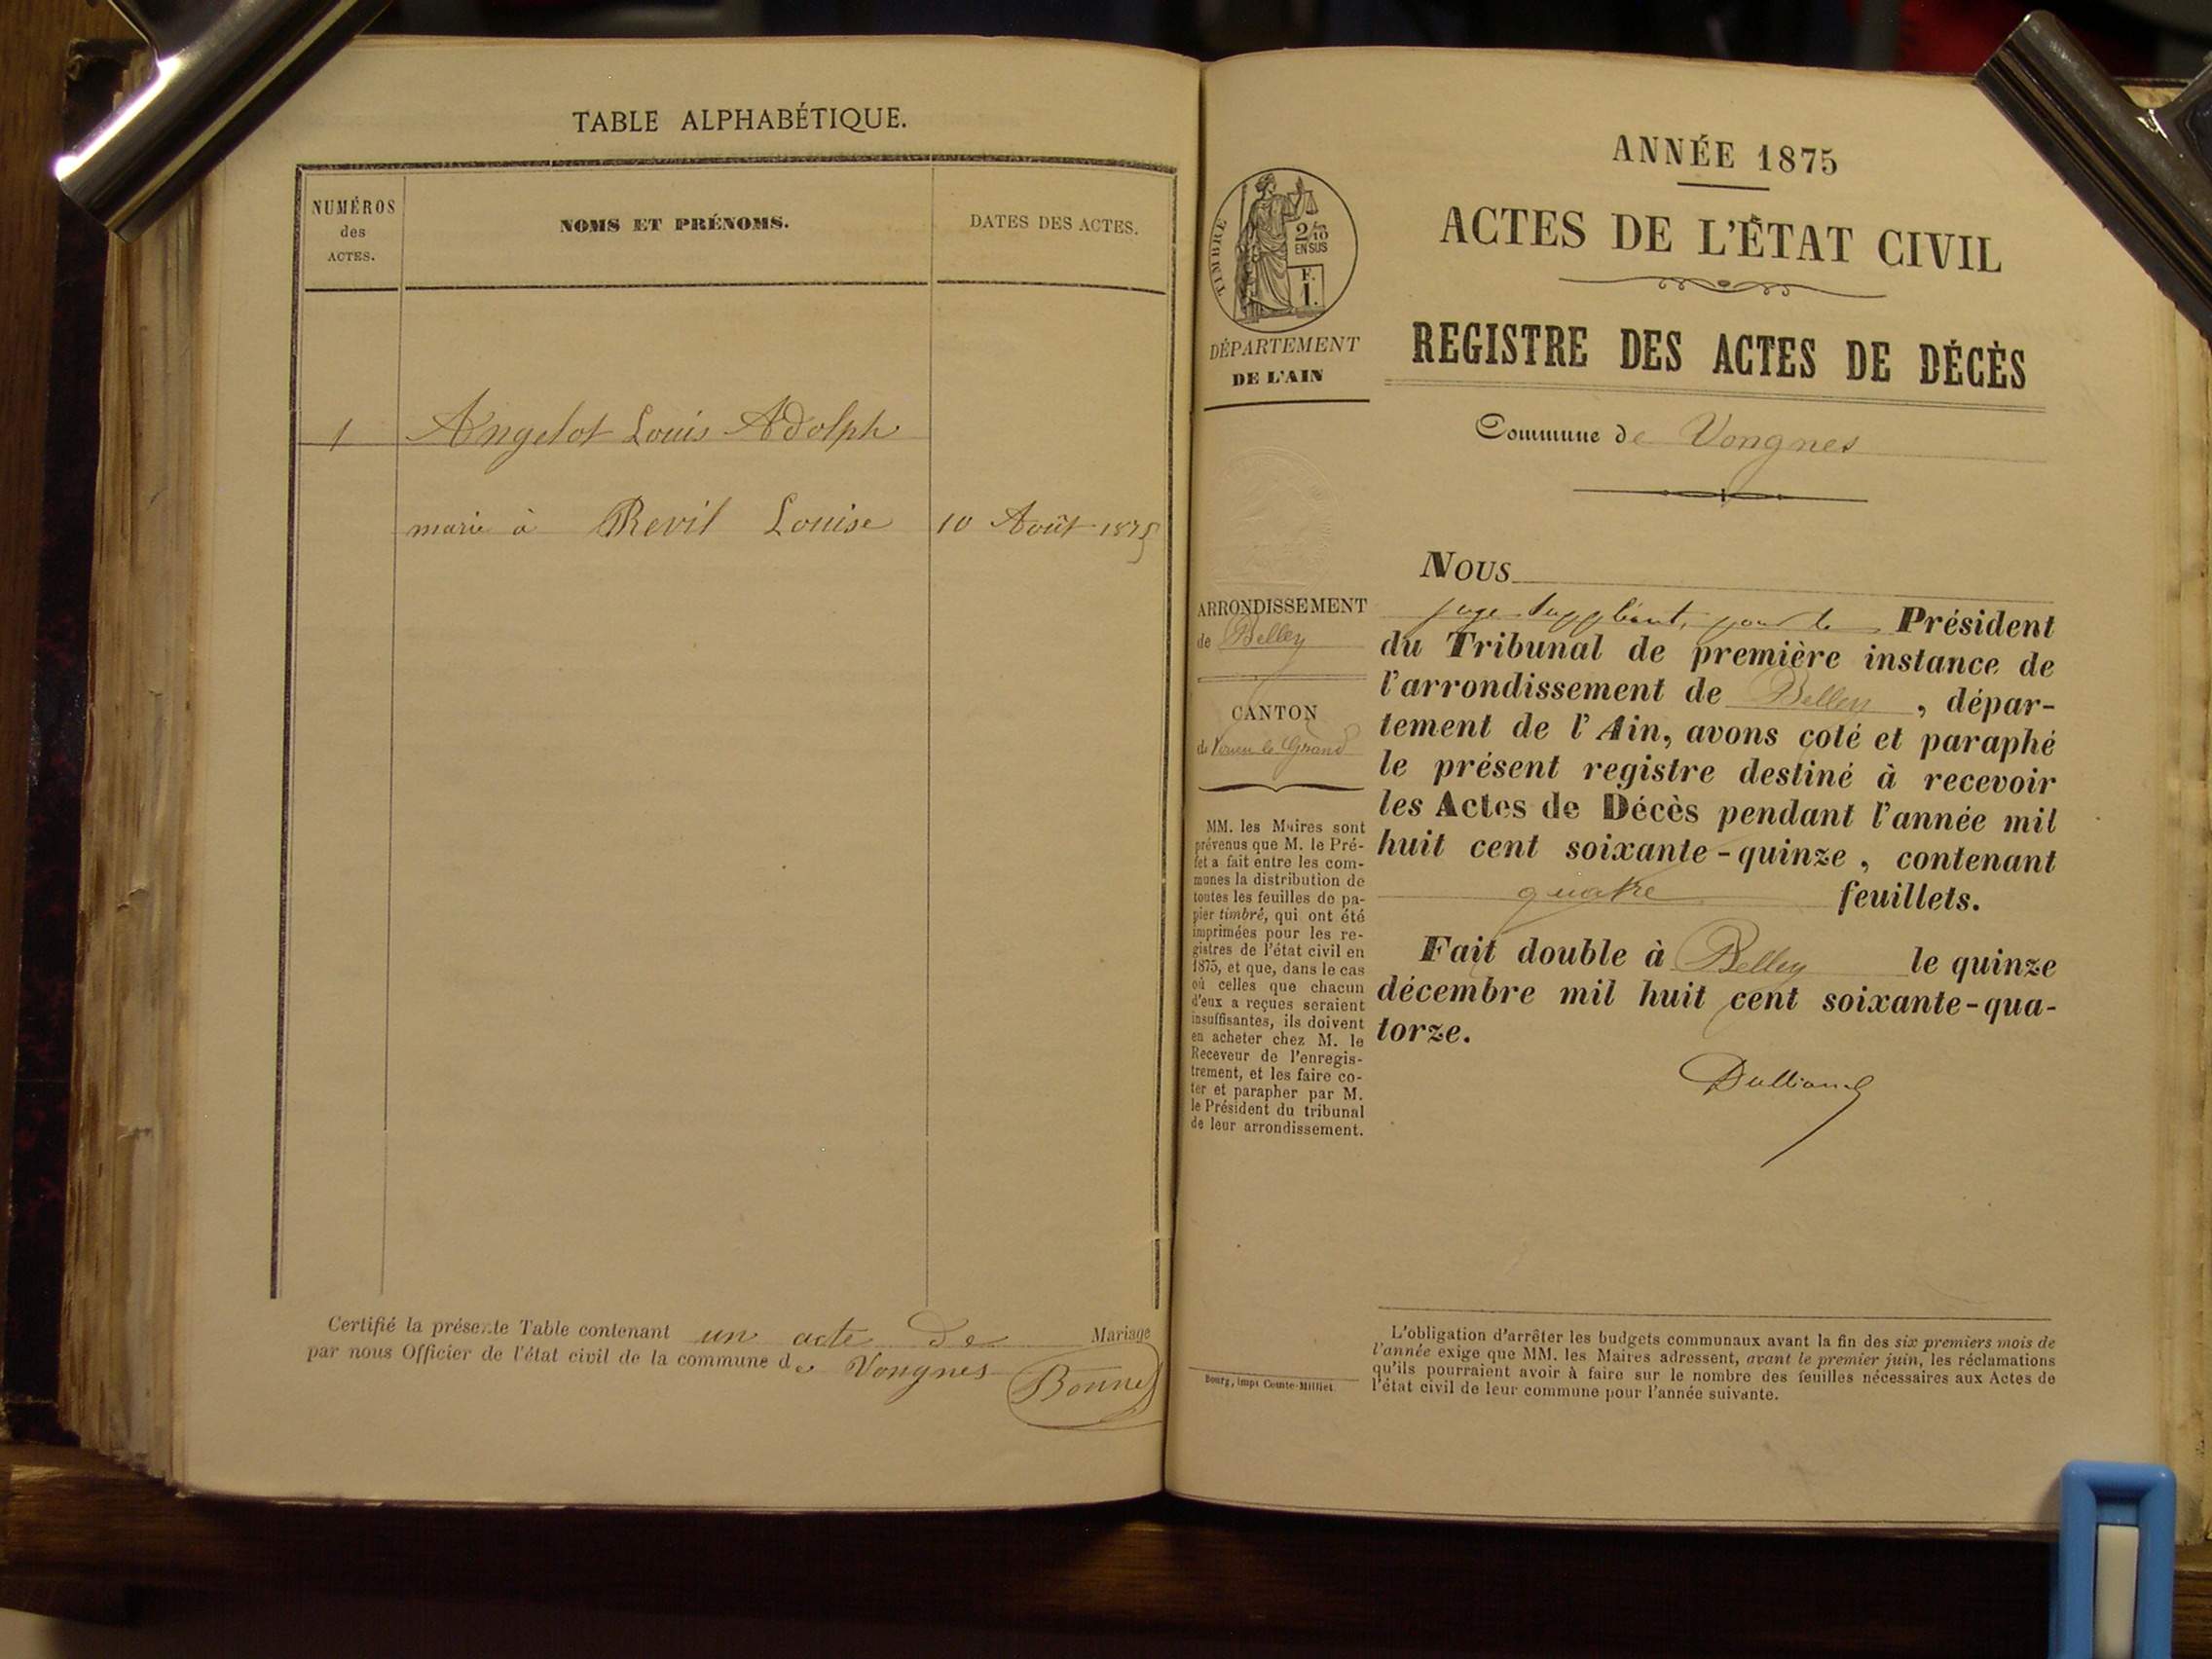 TABLE ALPHABÉTIQUE.
NUMÉROS
des
ACTES.
NOMS ET PRÉNOMS.
DATES DES ACTES.
1 Angelot Louis Adolph
marié à Revil Louise 10 Août 1875
Certifié la présente Table contenant un acte de Mariage
par nous Officier de l'état civil de la commune de Vongnes
Bonnet
TIMBRE
2/10
EN SUS
F.
1.
DÉPARTEMENT
DE L'AIN
ARRONDISSEMENT
de Belley
CANTON
de Virieu le Grand
MM. les Maires sont
prévenus que M. le Pré-
fet a fait entre les com-
munes la distribution de
toutes les feuilles de pa-
pier timbré, qui ont été
imprimées pour les re-
gistres de l'état civil en
1875, et que, dans le cas
où celles que chacun
d'eux a reçues seraient
insuffisantes, ils doivent
en acheter chez M. le
Receveur de l'enregis-
trement, et les faire co-
ter et parapher par M.
le Président du tribunal
de leur arrondissement.
Bourg, impr Comte-Milliet
ANNÉE 1875
ACTES DE L'ÉTAT CIVIL
REGISTRE DES ACTES DE DÉCÈS
Commune de Vongnes
Nous
juge suppléant, pour le Président
du Tribunal de première instance de
l'arrondissement de Belley, dépar-
tement de l'Ain, avons coté et paraphé
le présent registre destiné à recevoir
les Actes de Décès pendant l'année mil
huit cent soixante-quinze, contenant
quatre feuillets.
Fait double à Belley le quinze
décembre mil huit cent soixante-qua-
torze.
L'obligation d'arrêter les budgets communaux avant la fin des six premiers mois de
l'année exige que MM. les Maires adressent, avant le premier juin, les réclamations
qu'ils pourraient avoir à faire sur le nombre des feuilles nécessaires aux Actes de
l'état civil de leur commune pour l'année suivante.